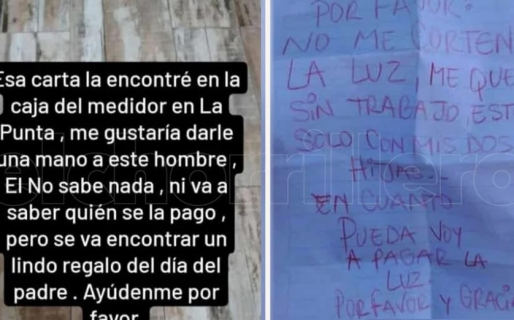 Esa carta la encontré en la
caja del medidor en La
Punta , me gustaría darle
una mano a este hombre ,
El No sabe nada , ni va a
saber quién se la pago ,
pero se va encontrar un
lindo regalo del día del
padre . Ayúdenme por
favor
POR FAVOR.
NO ME CORTEN
LA LUZ, ME QUE
SIN TRABAJO, EST
SOLO CON MIS DOS
HIJAS.
EN CUANTO
PUEDA VOY
A PAGAR LA
LUZ.
POR FAVOR Y GRACI
elchorrillero